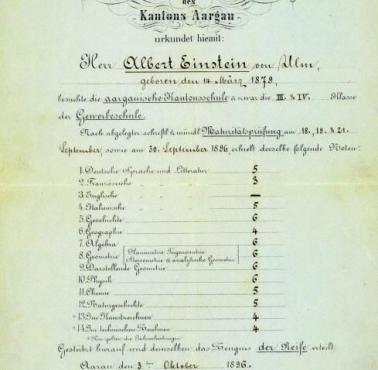 des
Kantons Aargau
urkundet hiemit:
Herr Albert Einstein von Ulm,
geboren den 14. März 1879,
besuchte die aargauische Kantonsschule & zwar die III. & IV. Klasse
der Gewerbeschule.
Nach abgelegter schriftl. & mündl. Maturitätsprüfung am 18., 19. & 21.
September, sowie am 30. September 1896, erhielt derselbe folgende Noten:
1. Deutsche Sprache und Litteratur 5
2. Französische " " " 3
3. Englische " " " —
4. Italienische " " " 5
5. Geschichte 6
6. Geographie 4
7. Algebra 6
8. Geometrie (Planimetrie, Trigonometrie, Stereometrie & analytische Geometrie) 6
9. Darstellende Geometrie 6
10. Physik 6
11. Chemie 5
12. Naturgeschichte 5
*13. Im Kunstzeichnen 4
*14. Im technischen Zeichnen 4
* Hier gelten die Jahresleistungen.
Gestützt hierauf wird demselben das Zeugnis der Reife erteilt.
Aarau den 3ten Oktober 1896.